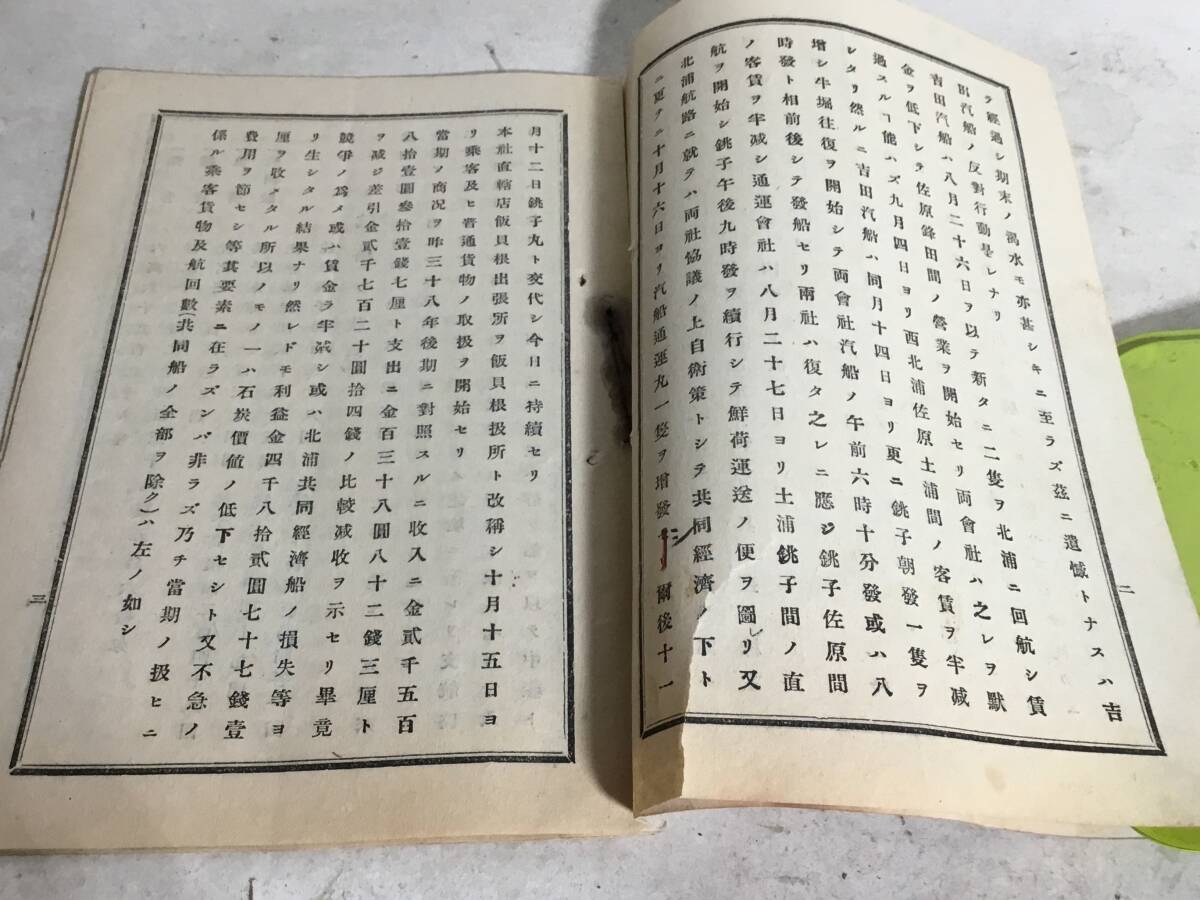 ラ經過シ期末ノ渴水モ亦甚シキニ至ラズ茲ニ遺憾トナスハ吉
田汽船ノ反對行動是レナリ
吉田汽船ハ八月二十六日ヲ以テ新タニ二隻ヲ北浦ニ回航シ賃
金ヲ低下シテ佐原鋒田間ノ營業ヲ開始セリ両會社ハ之レヲ默
過スルヿ能ハズ九月四日ヨリ西北浦佐原土浦間ノ客賃ヲ半减
シタリ然ルニ吉田汽船ハ同月十四日ヨリ更ニ銚子朝發一隻ヲ
增シ牛堀往復ヲ開始シテ両會社汽船ノ午前六時十分發或ハ八
時發ト相前後シテ發船セリ兩社ハ復タ之レニ應ジ銚子佐原間
ノ客賃ヲ半减シ通運會社ハ八月二十七日ヨリ土浦銚子間ノ直
航ヲ開始シ銚子午後九時發ヲ續行シテ鮮荷運送ノ便ヲ圖リ又
北浦航路ニ就テハ両社協議ノ上自衛策トシテ共同經濟ノ下ト
ニ更ラニ十月十六日ヨリ汽船通運丸一隻ヲ增發シ爾後十一
二
月十二日銚子丸ト交代シ今日ニ持續セリ
本社直轄店飯貝根出張所ヲ飯貝根扱所ト改稱シ十月十五日ヨ
リ乘客及ヒ普通貨物ノ取扱ヲ開始セリ
當期ノ商況ヲ昨三十八年後期ニ對照スルニ收入ニ金貳千五百
八拾壹圓叄拾壹錢七厘ト支出ニ金百三十八圓八十二錢三厘ト
ヲ减ジ差引金貳千七百二十圓拾四錢ノ比較减收ヲ示セリ畢竟
競爭ノ爲メ或ハ賃金ヲ半减シ或ハ北浦共同經濟船ノ損失等ヨ
リ生シタル結果ナリ然レドモ利益金四千八拾貳圓七十七錢壹
厘ヲ收メタル所以ノモノ一ハ石炭價値ノ低下セシト又不急ノ
費用ヲ節セシ等其要素ニ在ラズンバ非ラズ乃チ當期ノ扱ヒニ
係ル乘客貨物及航回數(共同船ノ全部ヲ除ク)ハ左ノ如シ
三